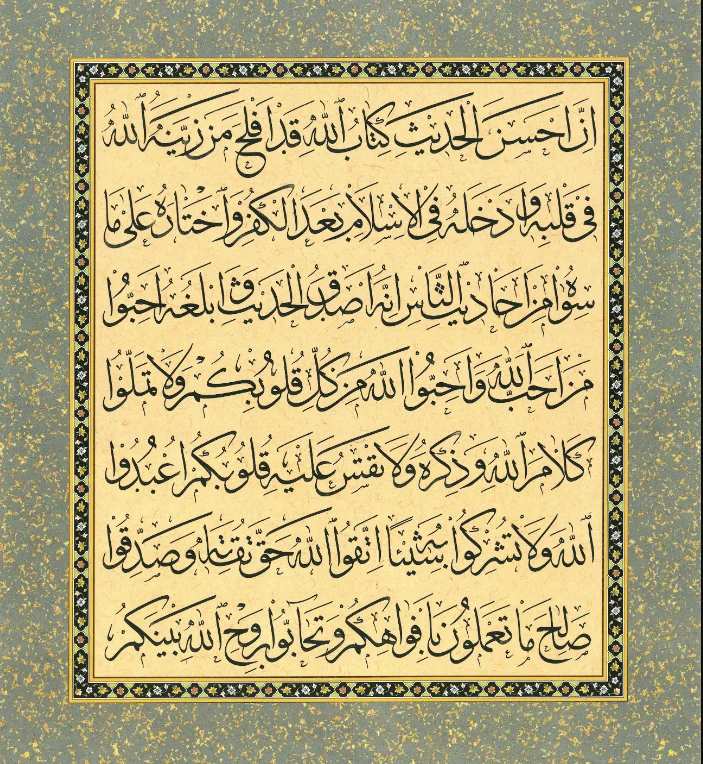 ان احسن الحديث كتاب الله قد افلح من زينه الله
في قلبه وادخله في الاسلام بعد الكفر واختاره على ما
سواه من احاديث الناس انه اصدق الحديث وابلغه احبوا
من احب الله واحبوا الله من كل قلوبكم ولا تملوا
كلام الله وذكره ولا تقس عليه قلوبكم اعبدوا
الله ولا تشركوا به شيئا اتقوا الله حق تقاته وصدقوا
صالح ما تعملون بافواهكم وتحابوا بروح الله بينكم